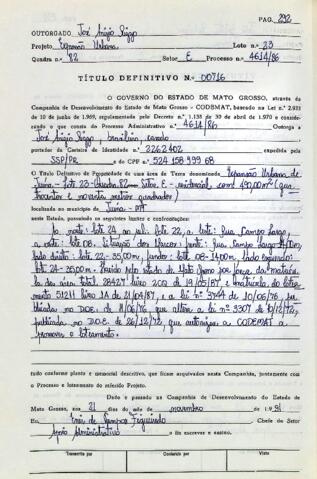 PAG. 292
OUTORGADO José Anjo Rizzo
Projeto Expansão Urbana Lote n.o 23
Quadra n.o 82 Setor E Processo n.o 4614/86
TÍTULO DEFINITIVO N.o 00716
O GOVERNO DO ESTADO DE MATO GROSSO, através da
Companhia de Desenvolvimento do Estado de Mato Grosso - CODEMAT, baseado na Lei n.o 2.931
de 10 de junho de 1.969, regulamentada pelo Decreto n.o 1.138 de 30 de abril de 1.970 e conside-
rando o que consta do Processo Administrativo n.o 4614/86 Outorga a
José Anjo Rizzo - brasileiro casado
portador da Carteira de Identidade n.o 2262402 expedida pela
SSP/PR e do CPF n.o 524.158.999.68
O Título Definitivo de Propriedade de uma área de Terra denominada Expansão Urbana de
Juína - Lote 23 - Quadra 82 Setor E - residencial com 490,00m² (qua-
trocentos e noventa metros quadrados)
localizada no município de Juína - MT
neste Estado, passando os seguintes limites e confrontações:
Ao norte: lote 24, ao sul: lote 22, a leste: Rua Campo Largo,
a oeste: lote 08. Situação dos Marcos: frente: Rua Campo Largo 14,00m,
lado direito: lote 22 - 35,00m, fundos: lote 08 - 14,00m, lado esquerdo:
lote 24 - 35,00m. Havido pelo estado de Mato Grosso por força da matrícu-
la da área total 28427 livro 202 de 19/05/87 e matrícula do lotea-
mento 51211 livro 1A de 21/04/87, e a lei nº 3744 de 10/06/76, pu-
blicada no D.O.E. de 11/06/76 que altera a lei nº 3307 de 18/12/72,
publicada no D.O.E. de 26/12/72, que autoriza a CODEMAT a
promover o loteamento.
tudo conforme planta e memorial descritivo, que ficam arquivados nesta Companhia, juntamente
com o Processo e loteamento do referido Projeto.
Dado e passado na Companhia de Desenvolvimento do Estado de
Mato Grosso, aos 21 dias do mês de novembro de 1.991
Eu Chefe do Setor
Apoio Administrativo o fiz escrever e assino.
Transcrito por
Conferido por
Visto